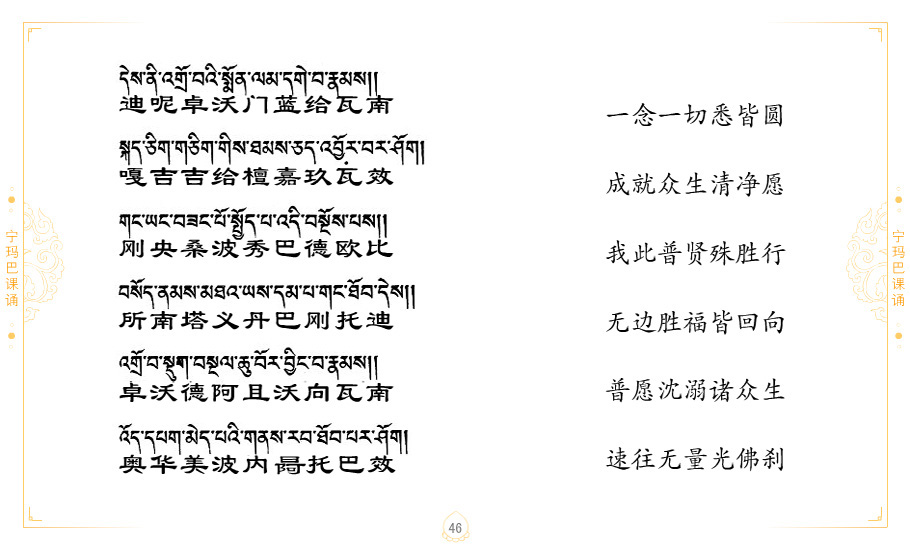 དེས་ནི་འགྲོ་བའི་སྨོན་ལམ་དགེ་བ་རྣམས།།
迪呢卓沃门蓝给瓦南
一念一切悉皆圆
སྐད་ཅིག་གཅིག་གིས་ཐམས་ཅད་འབྱོར་བར་ཤོག།
嘎吉吉给檀嘉玖瓦效
成就众生清净愿
གང་ཡང་བཟང་པོ་སྤྱོད་པ་འདི་བསྔོས་པས།།
刚央桑波秀巴德欧比
我此普贤殊胜行
བསོད་ནམས་མཐའ་ཡས་དམ་པ་གང་ཐོབ་དེས།།
所南塔义丹巴刚托迪
无边胜福皆回向
འགྲོ་བ་སྡུག་བསྔལ་ཆུ་བོར་བྱིང་བ་རྣམས།།
卓沃德阿且沃向瓦南
普愿沈溺诸众生
འོད་དཔག་མེད་པའི་གནས་རབ་ཐོབ་པར་ཤོག།
奥华美波内托巴效
速往无量光佛刹
宁玛巴课诵
宁玛巴课诵
46